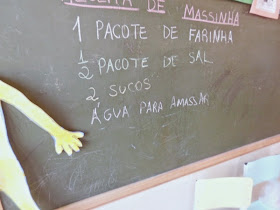 RECEITA DE MASSINHA
1 PACOTE DE FARINHA
1/2 PACOTE DE SAL
2 SUCOS
ÁGUA PARA AMASSAR